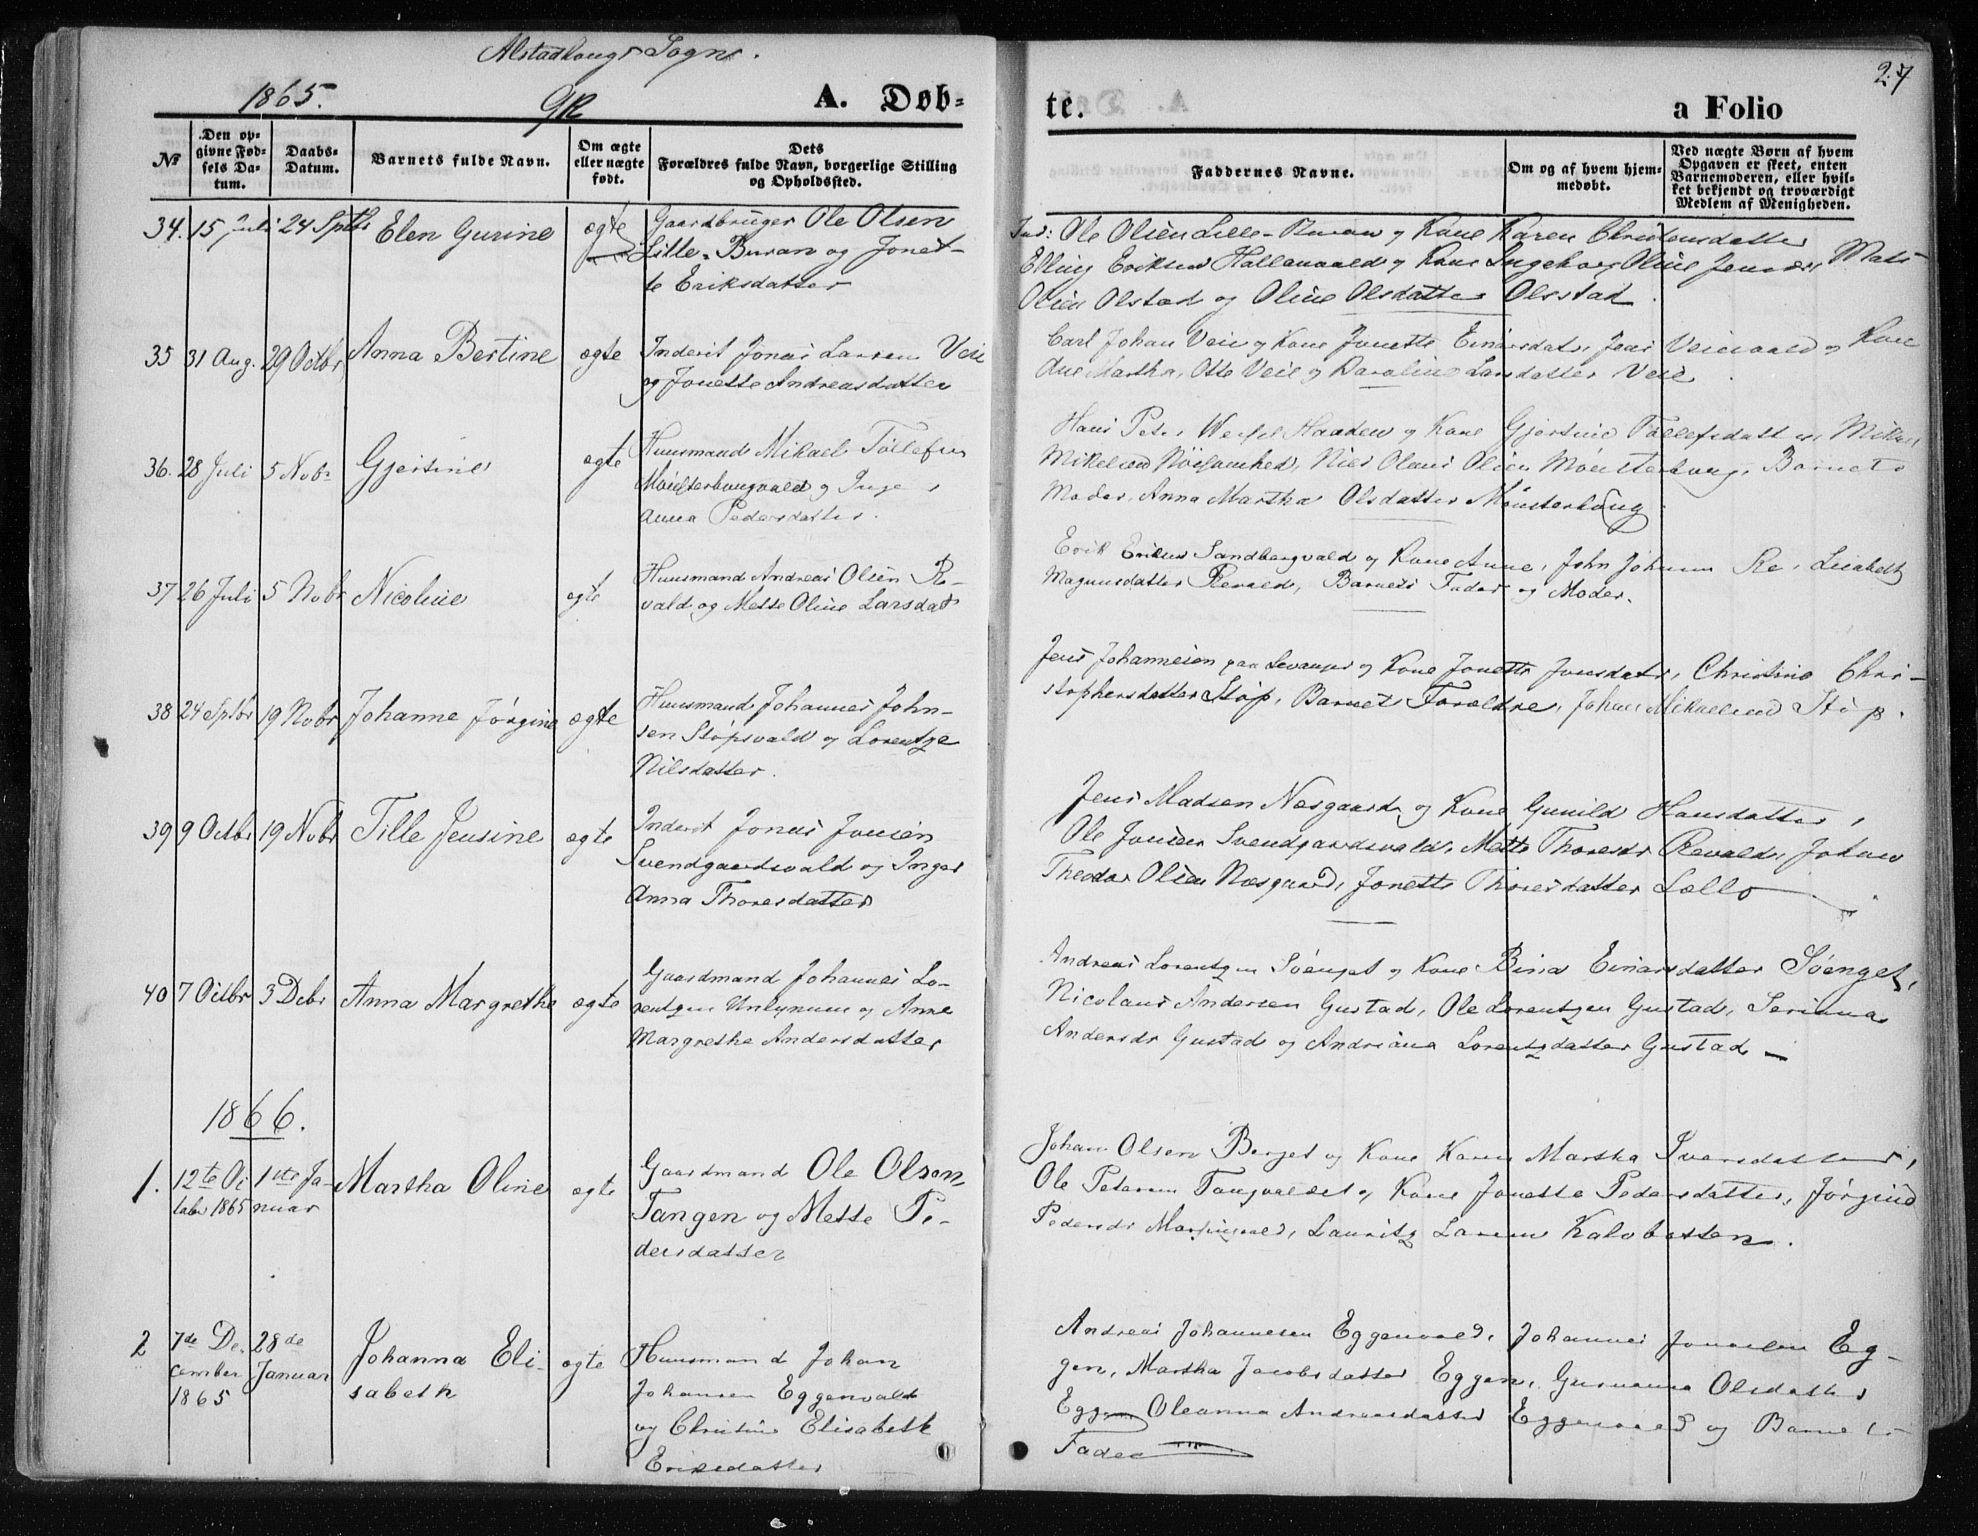 Alstadhougs Sogn.
27
1865.
A. Døb=
te.
a Folio
№
Den op=
givne Fød=
sels Da=
tum.
Daabs=
Datum.
Barnets fulde Navn.
Om ægte
eller uægte
født.
Dets
Forældres fulde Navn, borgerlige Stilling
og Opholdssted.
Faddernes Navne.
Om og af hvem hjem=
medøbt.
Ved uægte Børn af hvem
Opgaven er skeet, enten
Barnemoderen, eller hvil=
ket bekjendt og troværdigt
Medlem af Menigheden.
34. 15 Juli 24 Sptbr Elen Gurine ægte Gaardbruger Ole Olsen
Lille-Buran og Jonet-
te Eriksdatter
Ole Olsen Lille-Buran og Kone Karen Christensdatter
Elling Eriksen Hallanvald og Kone Ingeborg Oline Mats
Olsen Olstad og Oline Olsdatter Olstad
35 31 Aug. 29 Octbr Anna Bertine ægte Inderst Jonas Larsen Veie
og Jonette Andreasdatter
Carl Johan Veie og Kone Jonette Einarsdatr, Jens Veievald og Kone
Ane Martha, Otto Veie og Larsdatter Veie
36. 28 Juli 5 Nobr Gjertine ægte Huusmand Mikael Tollefsen
Mønsterhougvald og Inger
Anna Pedersdatter.
Hans Peter Haaden og Kone Gjertine Tollefsdatter, Mikal
Mikelsen Nøisomhed, Nils Olaus Olsen Mønsterhoug, Barnets
Moder, Anna Martha Olsdatter Mønsterhoug
37 26 Juli 5 Nobr Nicoline ægte Huusmand Andreas Olsen Re-
vald og Mette Oline Larsdatr
Erik Eriksen Sandbergvald og Kone Anne, John Johnsen Re, Lisabeth
Magnusdatter Revald, Barnets Fader og Moder.
38 24 Sptbr 19 Nobr Johanne Jørgine ægte Huusmand Johannes John-
sen Støpsvald og Lorentze
Nilsdatter.
Jens Johannesen paa Levanger og Kone Jonette Jonsdatr, Christine Chri-
stophersdatter Støp, Barnets Forældre, Johan Mikaelsen Støp.
39 9 Octbr 19 Nobr Tille Jensine ægte Inderst Jonas Jonsen
Svendgaardsvald og Inger
Anna Thoresdatter
Jens Madsen Nesgaard og Kone Gunild Hansdatter,
Ole Jonsen Svendgaardsvald, Mette Thoresdr Revald, Johan
Theodor Olsen Nesgaard, Jonette Thoresdatter Lello
40 7 Octbr 3 Debr Anna Margrethe ægte Gaardmand Johannes Lo-
rentzen Unlynum og Anne
Margrethe Andersdatter
Andreas Lorentzen Svenget og Kone Bina Einarsdatter Svenget,
Nicolaus Andersen Gustad, Ole Lorentzen Gustad, Serianna
Andersdr Gustad og Andriana Lorentzdatter Gustad —
1866.
1. 12te Oc-
tober 1865 1ste Ja-
nuar Martha Oline ægte Gaardmand Ole Olsen
Tangen og Mette Pe-
dersdatter
Johan Olsen Berget og Kone Karen Martha Iversdatter,
Ole Petersen Tangvaldet og Kone Jonette Pedersdatter, Jørgine
Pedersdr, Lauritz Larsen Kalvbotten.
2 7de De-
cember
1865 28de
Januar Johanna Eli-
sabeth ægte Huusmand Johan
Johansen Eggenvald
og Christine Elisabeth
Eriksdatter
Andreas Johannesen Eggenvald, Johannes Eg-
gen, Martha Jacobsdatter Eggen, Olsdatter
Eggen Oleanna Andreasdatter Eggenvald og Barnets
Fader